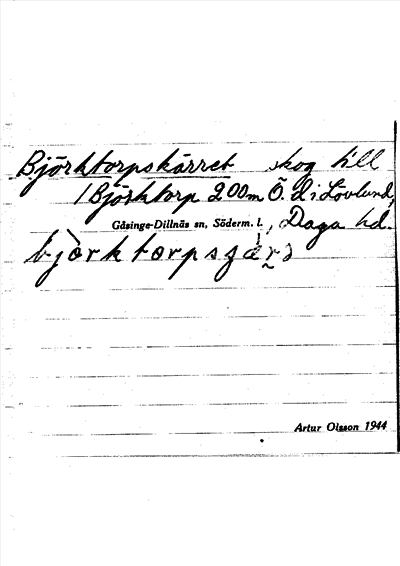 Björktorpskärret skog till
/Björktorp 200m Ö. d:i Lövlund,
Gåsinge-Dillnäs sn, Söderm. l., Daga hd.
Artur Olsson 1944